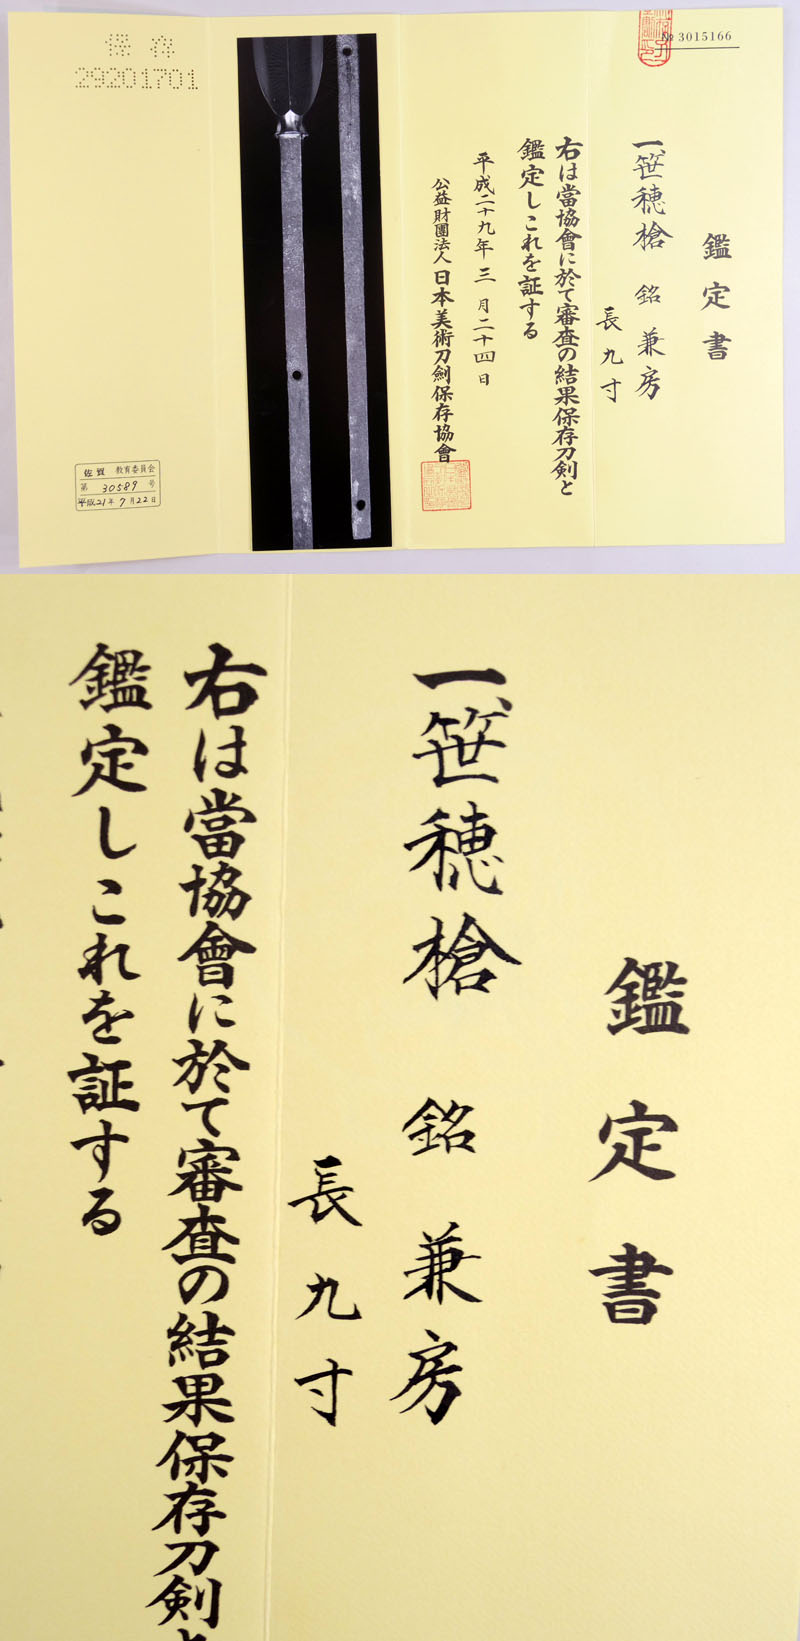 № 3015166
鑑定書
一、笹穂槍 銘 兼房
長九寸
右は當協會に於て審査の結果保存刀剣と
鑑定しこれを証する
平成二十九年 三月二十四日
公益財團法人 日本美術刀劍保存協會
保存
29201701
佐賀 教育委員会
第 30589 号
平成21年7月22日
鑑定書
一、笹穂槍 銘 兼房
長九寸
右は當協會に於て審査の結果保存刀剣と
鑑定しこれを証する